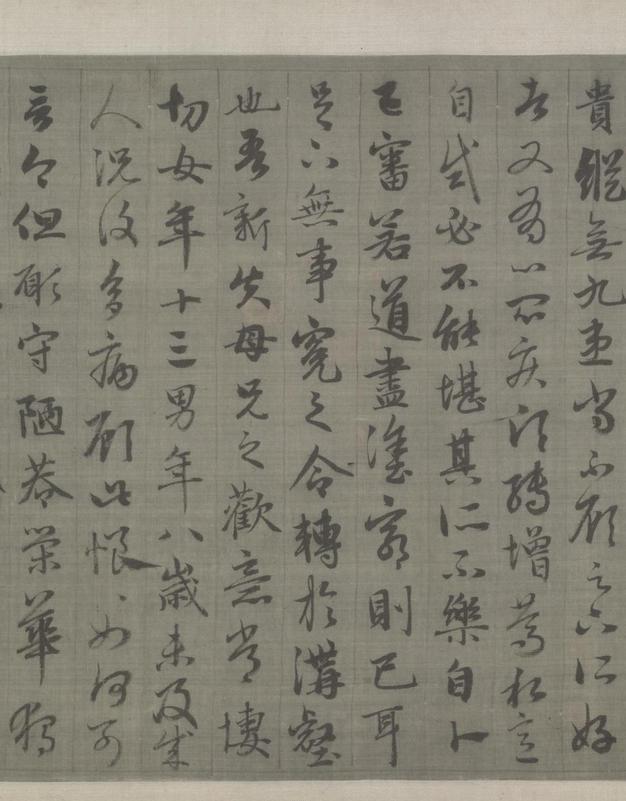 貴縱無九患尚不顧足下所好
者又有心悶疾頃轉增篤私意
自試必不能堪其所不樂自卜
已審若道盡塗窮則已耳
足下無事冤之令轉於溝壑
也吾新失母兄之歡意常悽
切女年十三男年八歲未及成
人況復多病顧此恨、如何可
言今但願守陋巷榮華獨